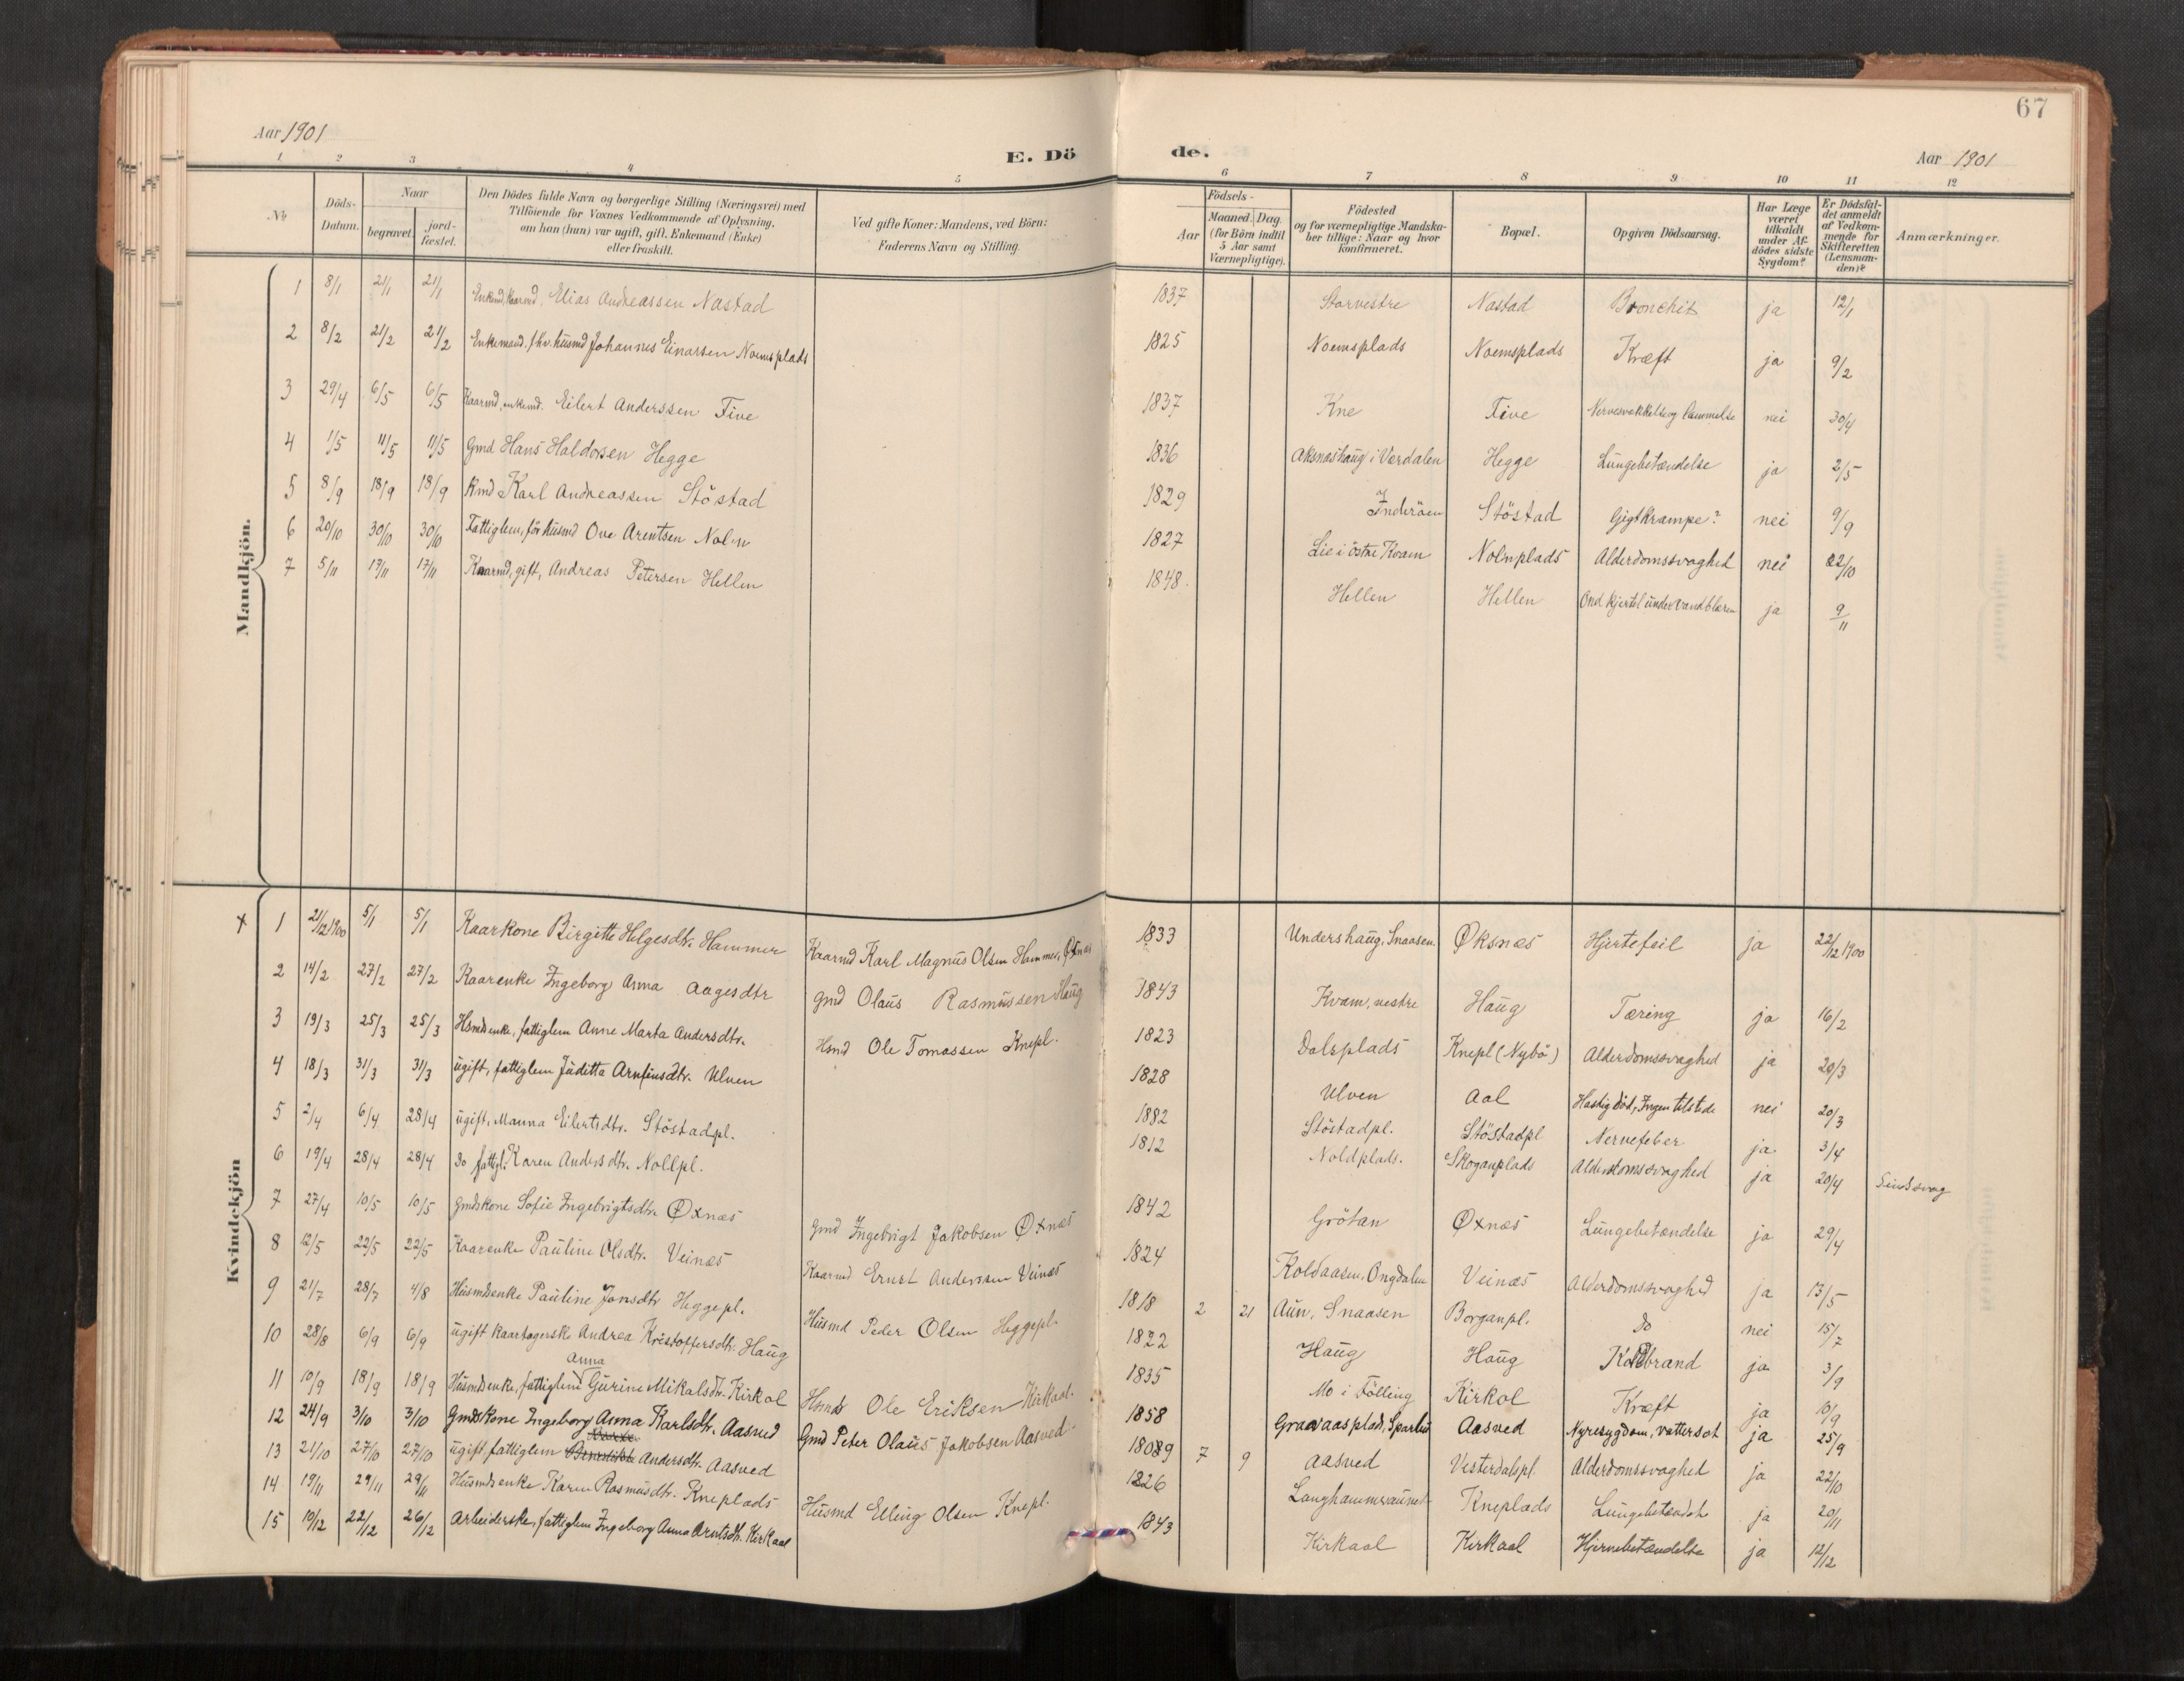 67
Aar 1901
E. Dö
de.
Aar 1901
1 2 3 4 5 6 7 8 9 10 11 12
No
Döds-Datum.
Naar
begravet.
jord-fæstet.
Den Dödes fulde Navn og borgerlige Stilling (Næringsvei) med
Tilföiende for Voxnes Vedkommende af Oplysning,
om han (hun) var ugift, gift, Enkemand (Enke)
eller fraskilt.
Ved gifte Koner: Mandens, ved Börn:
Faderens Navn og Stilling.
Födsels-
Aar
Maaned. Dag.
(for Börn indtil
5 Aar samt
Værnepligtige).
Födested
og for værnepligtige Mandska-
ber tillige: Naar og hvor
konfirmeret.
Bopæl.
Opgiven Dödsaarsag.
Har Læge
været
tilkaldt
under Af-
dödes sidste
Sygdom?
Er Dödsfal-
det anmeldt
af Vedkom-
mende for
Skifteretten
(Lensman-
den)?
Anmærkninger.
Mandkjön.
1 8/1 21/1 21/1 Enkemd, Kaarmd. Elias Andreassen Nastad 1837 Storvestre Nastad Bronchit ja 12/1
2 8/2 21/2 21/2 Enkemand, fhv. husmd Johannes Einarsen Noemsplads 1825 Noemsplads Noemsplads Kræft ja 9/2
3 29/4 6/5 6/5 Kaarmd, enkemd. Eilert Anderssen Five 1837 Kne Five Nervesvækkelse og lammelse nei 30/4
4 1/5 11/5 11/5 Gmd Hans Haldorsen Hegge 1836 Aksnashaug i Værdalen Hegge Lungebetændelse ja 2/5
5 8/9 18/9 18/9 Kmd Karl Andreassen Stöstad 1829 Inderöen Stöstad Gigtkrampe? nei 9/9
6 20/10 30/10 30/10 Fattiglem, för husmd Ove Arentsen Noln 1827 Lie i östre Kvam Nolnplads Alderdomssvaghed nei 22/10
7 5/11 17/11 17/11 Kaarmd, gift, Andreas Petersen Hellem 1848. Hellem Hellem Ond kjertel under vandblæren ja 9/11
Kvindekjön
+ 1 21/12 1900 5/1 5/1 Kaarkone Birgitte Helgesdtr. Hammer Kaarmd Karl Magnus Olsen Hammer, Öxnæs 1833 Undershaug, Snaasen. Øksnæs Hjertefeil ja 22/12 1900
2 14/2 27/2 27/2 Kaarenke Ingeborg Anna Aagesdtr Gmd Olaus Rasmussen Haug 1843 Kvam, vestre Haug Tæring ja 16/2
3 19/3 25/3 25/3 Hsmdsenke, fattiglem Anne Marta Andersdtr. Hsmd Ole Tomassen Knepl. 1823 Dalsplads Knepl (Nybö) Alderdomssvaghed ja 20/3
4 18/3 31/3 31/3 ugift, fattiglem Juditta Arnfinsdtr. Ulven 1828 Ulven Aal Hastig död, Ingen tilstede nei 20/3
5 2/4 6/4 28/4 ugift, Manna Eilertsdtr. Stöstadpl. 1882 Stöstadpl. Stöstadpl Nervefeber ja 3/4
6 19/4 28/4 28/4 do fattigl. Karen Andersdtr. Nollpl. 1812 Noldplads. Skoganplads Alderdomssvaghed ja 20/4 Sindssvag
7 27/4 10/5 10/5 Gmdskone Sofie Ingebrigtsdtr. Øxnæs Gmd Ingebrigt Jakobsen Øxnæs 1842 Grötan Øxnæs Lungebetændelse ja 29/4
8 12/5 22/5 22/5 Kaarenke Pauline Olsdtr. Veinæs Kaarmd Ernst Anderssen Veinæs 1824 Koldaasen, Ongdalen Veinæs Alderdomssvaghed ja 13/5
9 21/7 28/7 4/8 Husmdsenke Pauline Jonsdtr Heggepl. Husmd Peder Olsen Heggepl. 1818 2 21 Aun, Snaasen Borganpl. do nei 15/7
10 28/8 6/9 6/9 ugift kaartagerske Andrea Kristoffersdtr. Haug 1822 Haug Haug Koldbrand ja 3/9
Anna
11 10/9 18/9 18/9 Husmdsenke, fattiglem Gurine Mikalsdtr. Kirkol Hsmd Ole Eriksen Kirkaal. 1835 Mo i Fölling Kirkol Kræft ja 10/9
12 24/9 3/10 3/10 Gmdskone Ingeborg Anna Karlsdtr. Aasved Gmd Peter Olaus Jakobsen Aasved. 1858 Graavaasplads, Sparbu Aasved Nyresygdom, vattersot ja 25/9
13 21/10 27/10 27/10 ugift fattiglem Andersdtr. Aasved 18089 7 9 Aasved Vesterdalspl. Alderdomssvaghed ja 22/10
14 19/11 29/11 29/11 Husmdsenke Karen Rasmusdtr. Kneplads Husmd Elling Olsen Knepl. 1826 Langhammeraunet Kneplads Lungebetændelse ja 20/11
15 10/12 22/12 26/12 Arbeiderske, fattiglem Ingeborg Anna Arntsdtr. Kirkaal 1843 Kirkaal Kirkaal Hjernebetændelse ja 12/12